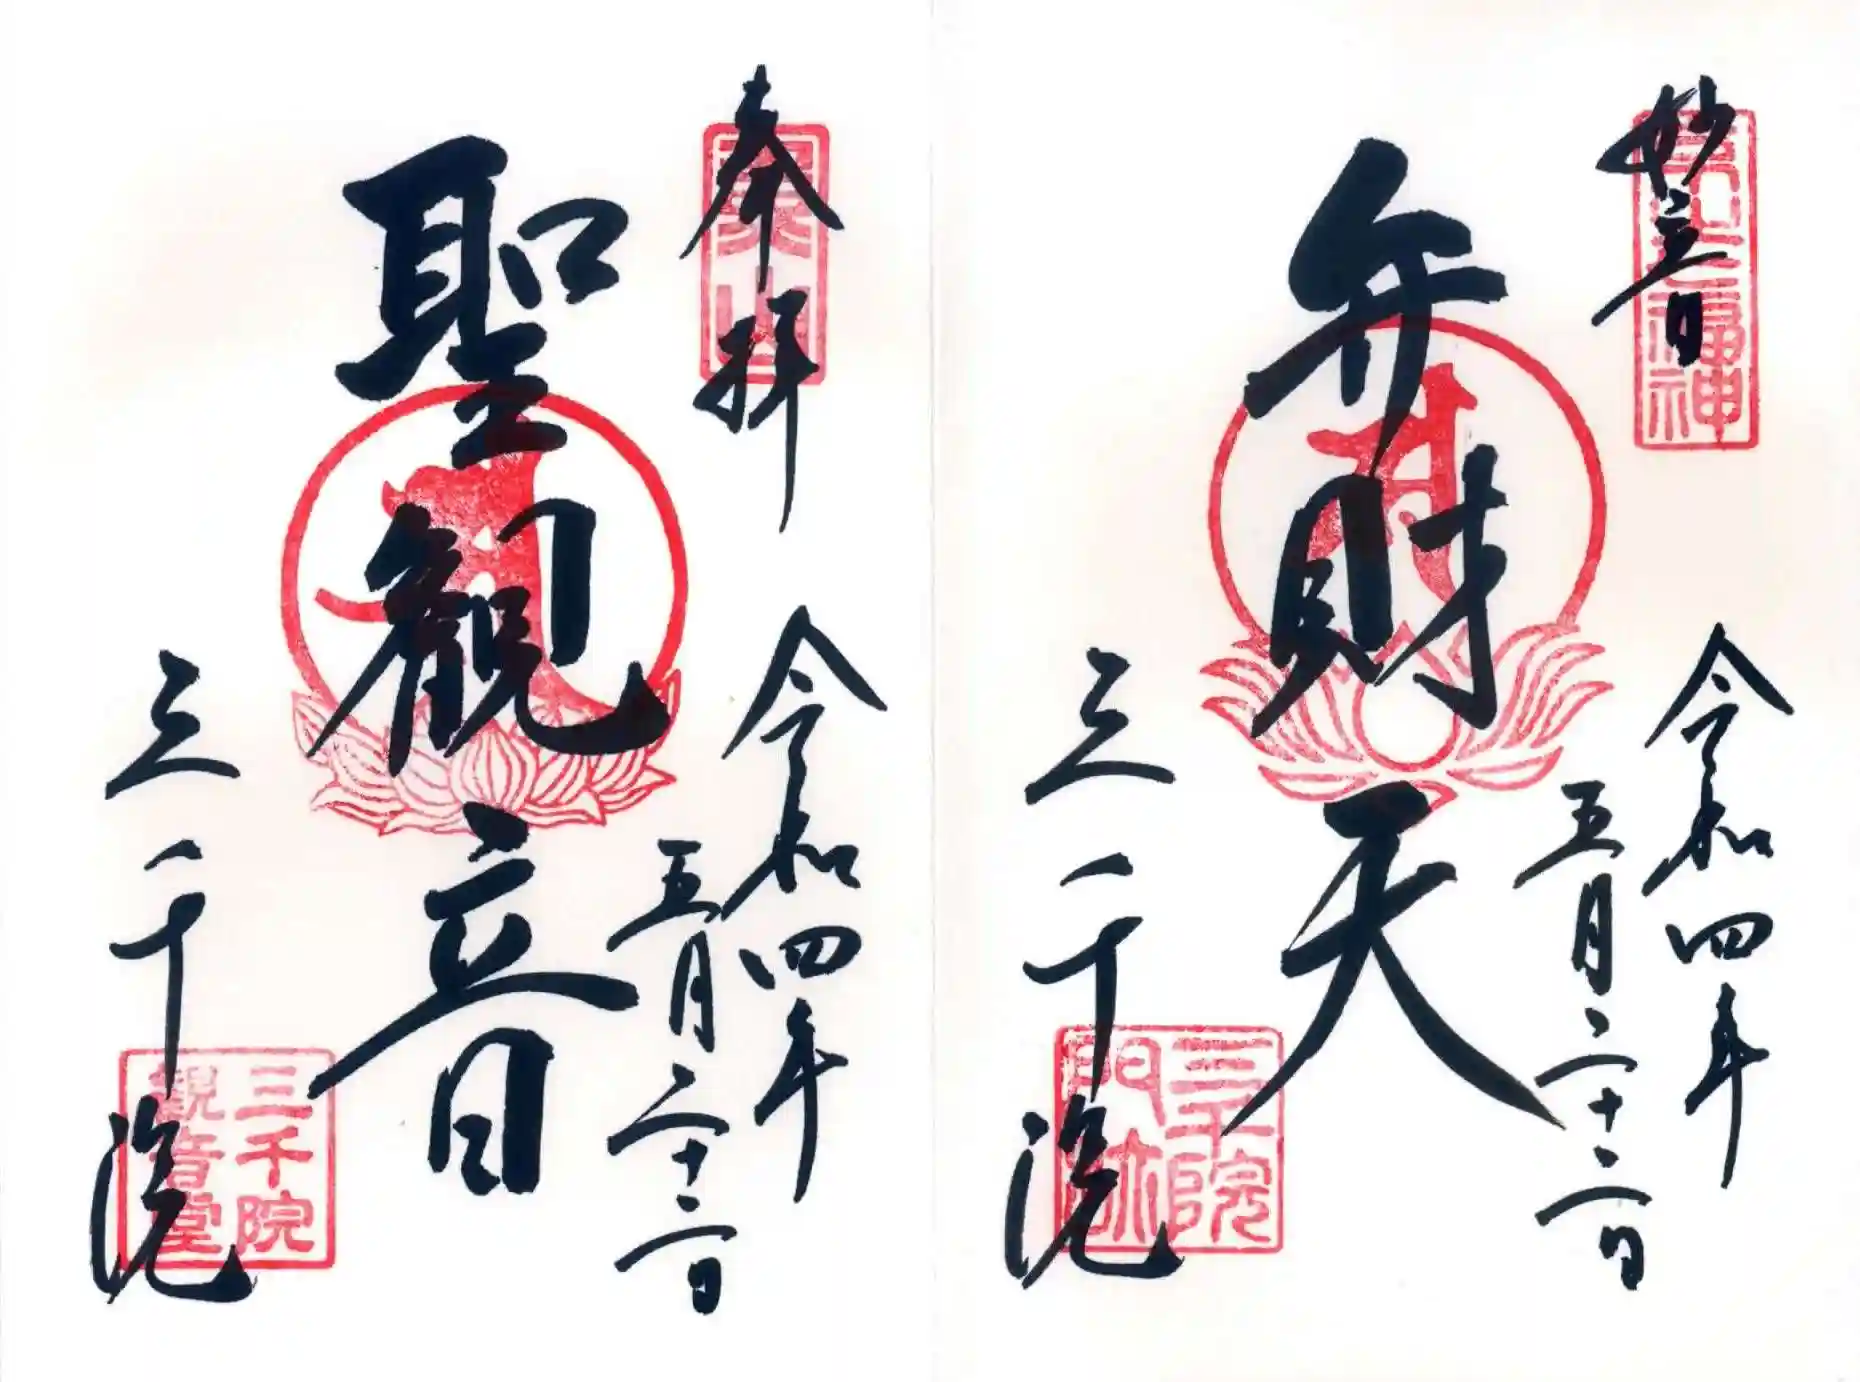 妙音
令和四年
五月二十二日
弁財天
三千院
三千院
門跡
奉拝
魚山
令和四年
五月二十二日
聖観音
三千院
三千院
観音堂